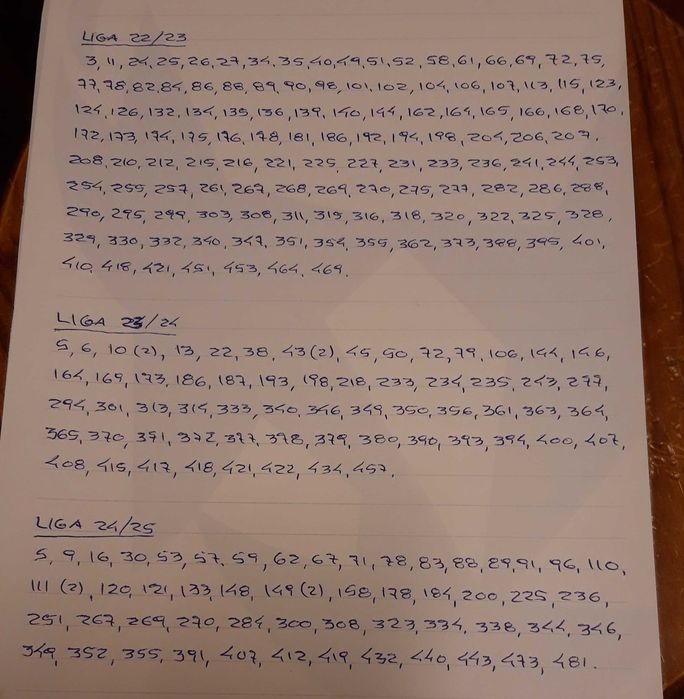 LIGA 22/23
3, 11, 24, 25, 26, 27, 34, 35, 40, 49, 51, 52, 58, 61, 66, 69, 72, 75,
77, 78, 82, 84, 86, 88, 89, 90, 98, 101, 102, 104, 106, 107, 113, 115, 123,
124, 126, 132, 134, 135, 136, 139, 140, 144, 162, 164, 165, 166, 168, 170,
172, 173, 174, 175, 176, 178, 181, 186, 192, 194, 198, 204, 206, 207,
208, 210, 212, 215, 216, 221, 225, 227, 231, 233, 236, 241, 244, 253,
254, 255, 257, 261, 267, 268, 269, 270, 275, 277, 282, 286, 288,
290, 295, 299, 303, 308, 311, 315, 316, 318, 320, 322, 325, 328,
329, 330, 332, 340, 347, 351, 354, 355, 362, 373, 388, 395, 401,
410, 418, 421, 451, 453, 464, 469.
LIGA 23/24
5, 6, 10 (2), 13, 22, 38, 43 (2), 45, 50, 72, 79, 106, 144, 146,
164, 169, 173, 186, 187, 193, 198, 218, 233, 234, 235, 243, 277,
294, 301, 313, 314, 333, 340, 346, 349, 350, 356, 361, 363, 364,
365, 370, 371, 372, 377, 378, 379, 380, 390, 393, 394, 400, 407,
408, 415, 417, 418, 421, 422, 434, 457.
LIGA 24/25
5, 9, 16, 30, 53, 57, 59, 62, 67, 71, 78, 83, 88, 89, 91, 96, 110,
111 (2), 120, 121, 133, 148, 149 (2), 158, 178, 184, 200, 225, 236,
251, 267, 269, 270, 284, 300, 308, 323, 334, 338, 344, 346,
349, 352, 355, 391, 407, 412, 419, 432, 440, 443, 473, 481.